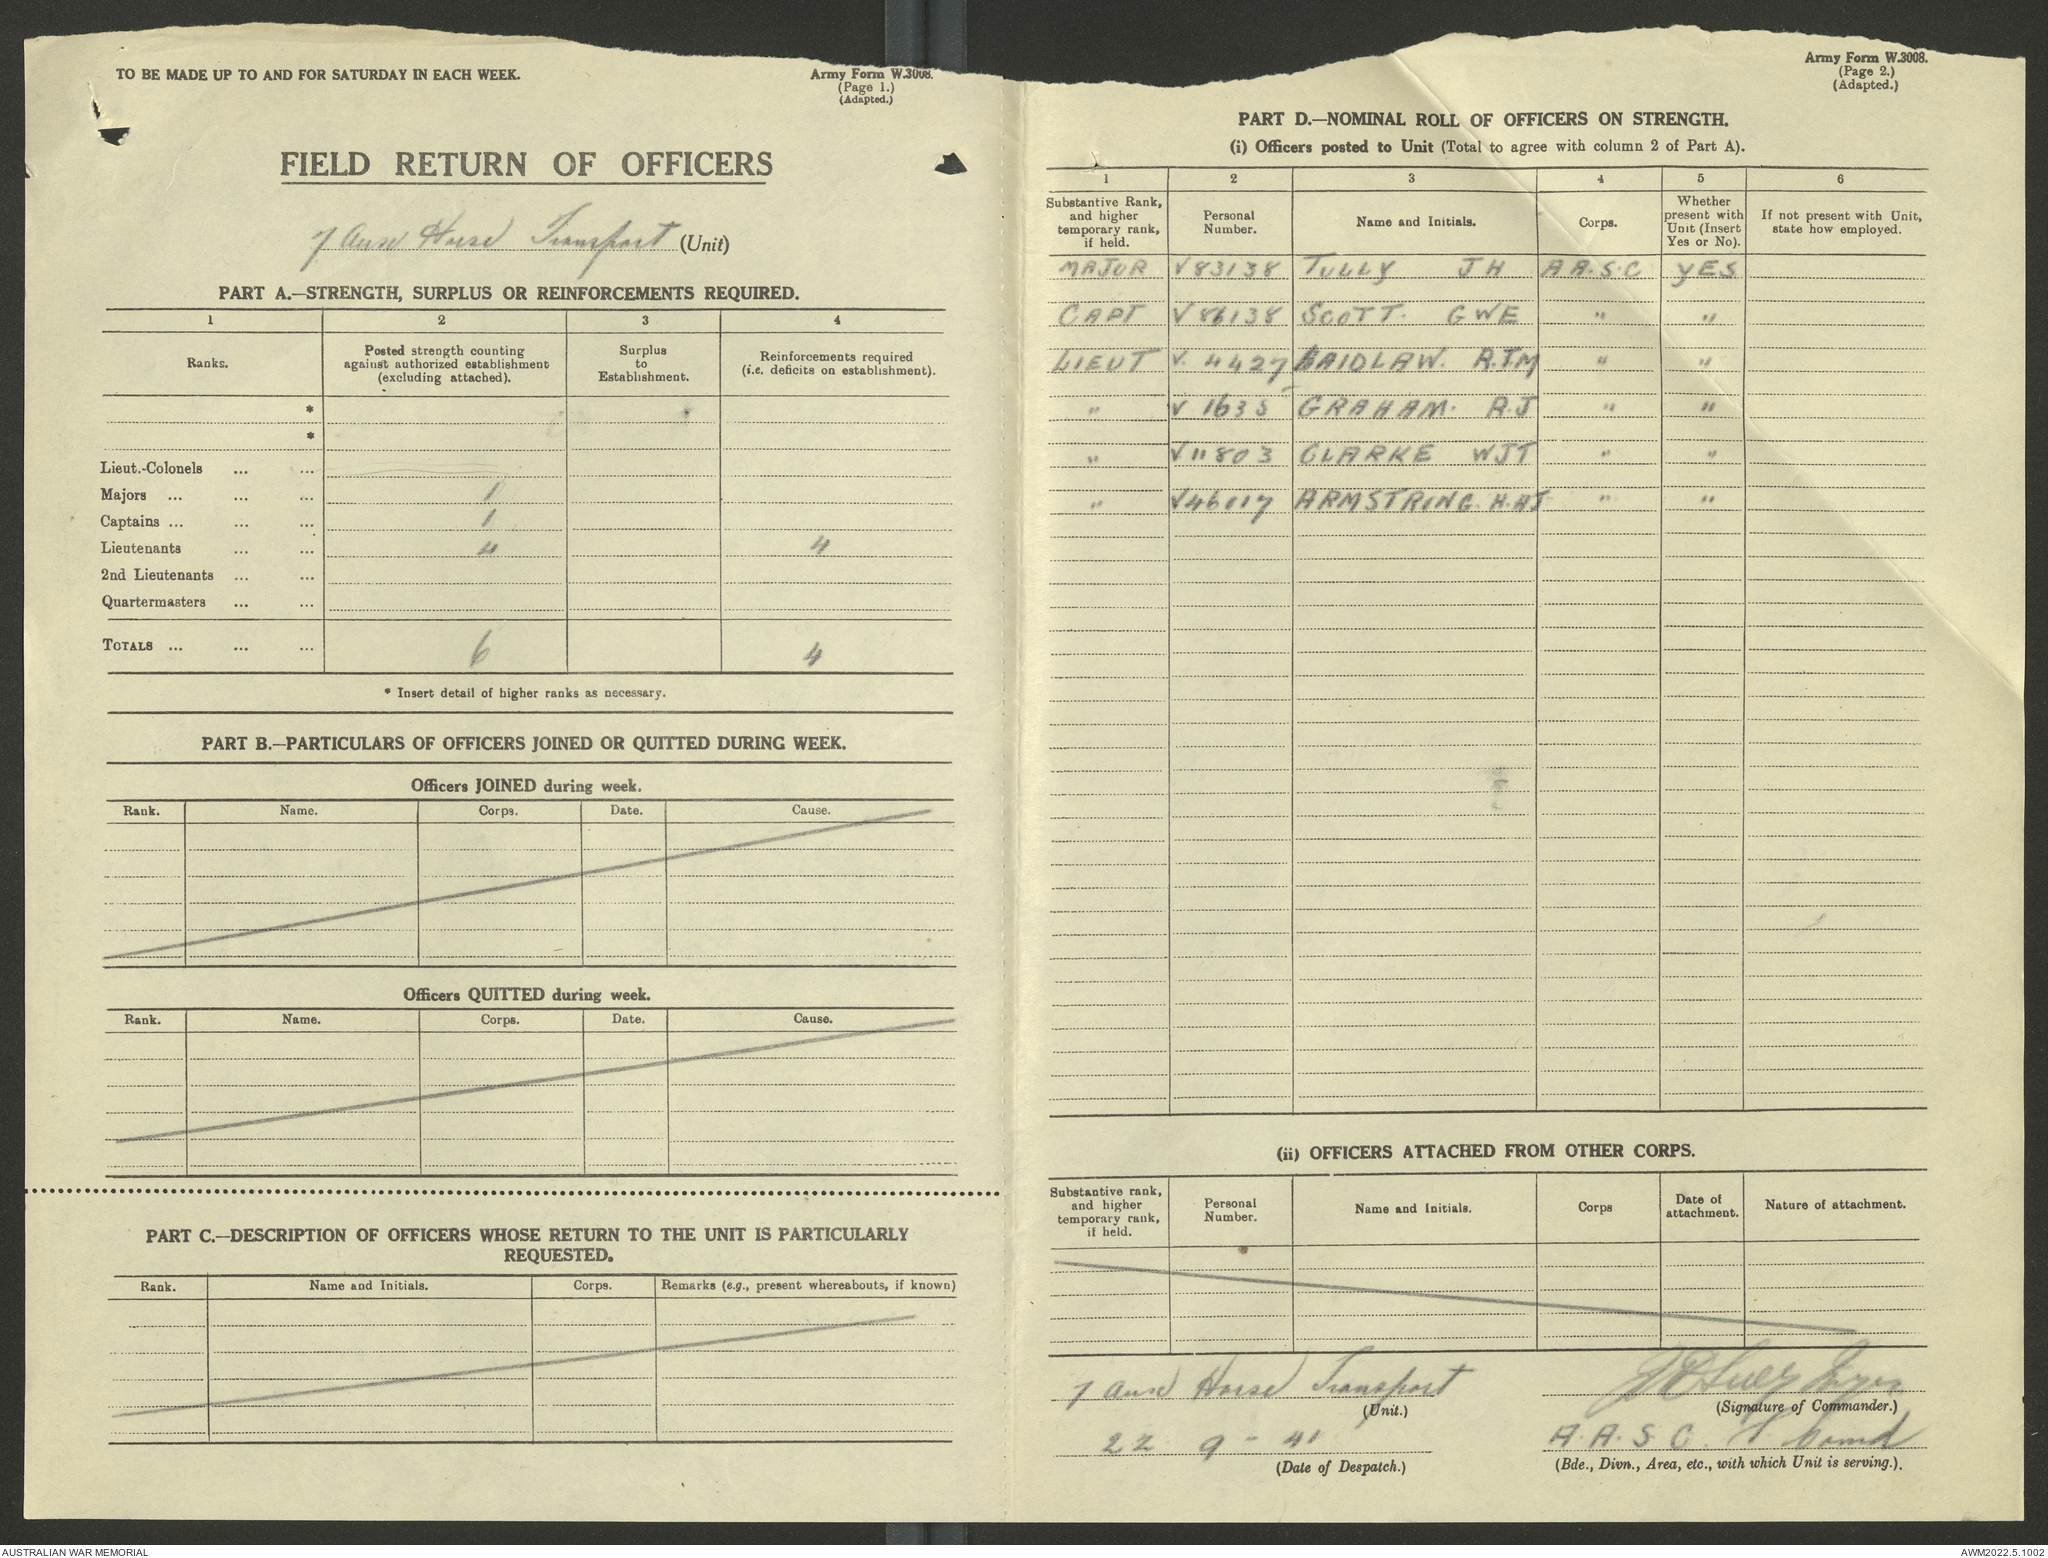 TO BE MADE UP TO AND FOR SATURDAY IN EACH WEEK.
Army Form W.3008.
(Page 1.)
(Adapted.)
FIELD RETURN OF OFFICERS
7 Aust Horse Transport (Unit)
PART A.—STRENGTH, SURPLUS OR REINFORCEMENTS REQUIRED.
1 2 3 4
Ranks. Posted strength counting against authorized establishment (excluding attached). Surplus to Establishment. Reinforcements required (i.e. deficits on establishment).
*
*
Lieut.-Colonels ... ...
Majors ... ... ... 1
Captains ... ... ... 1
Lieutenants ... ... 4 4
2nd Lieutenants ... ...
Quartermasters ... ...
TOTALS ... ... ... 6 4
* Insert detail of higher ranks as necessary.
PART B.—PARTICULARS OF OFFICERS JOINED OR QUITTED DURING WEEK.
Officers JOINED during week.
Rank. Name. Corps. Date. Cause.
Officers QUITTED during week.
Rank. Name. Corps. Date. Cause.
PART C.—DESCRIPTION OF OFFICERS WHOSE RETURN TO THE UNIT IS PARTICULARLY
REQUESTED.
Rank. Name and Initials. Corps. Remarks (e.g., present whereabouts, if known)
Army Form W.3008.
(Page 2.)
(Adapted.)
PART D.—NOMINAL ROLL OF OFFICERS ON STRENGTH.
(i) Officers posted to Unit (Total to agree with column 2 of Part A).
1 2 3 4 5 6
Substantive Rank, and higher temporary rank, if held. Personal Number. Name and Initials. Corps. Whether present with Unit (Insert Yes or No). If not present with Unit, state how employed.
MAJOR V83138 TULLY JH A A.S.C YES
CAPT V86138 SCOTT. GWE " "
LIEUT V. 4427 LAIDLAW. R.T.M " "
" V 1635 GRAHAM. R.J " "
" V11803 CLARKE WJT " "
" V46017 ARMSTRONG. H.HJ " "
(ii) OFFICERS ATTACHED FROM OTHER CORPS.
Substantive rank, and higher temporary rank, if held. Personal Number. Name and Initials. Corps Date of attachment. Nature of attachment.
7 Aust Horse Transport
(Unit.)
(Signature of Commander.)
22 9 - 41 A.A.S.C.
(Date of Despatch.) (Bde., Divn., Area, etc., with which Unit is serving.).
AUSTRALIAN WAR MEMORIAL AWM2022.5.1002